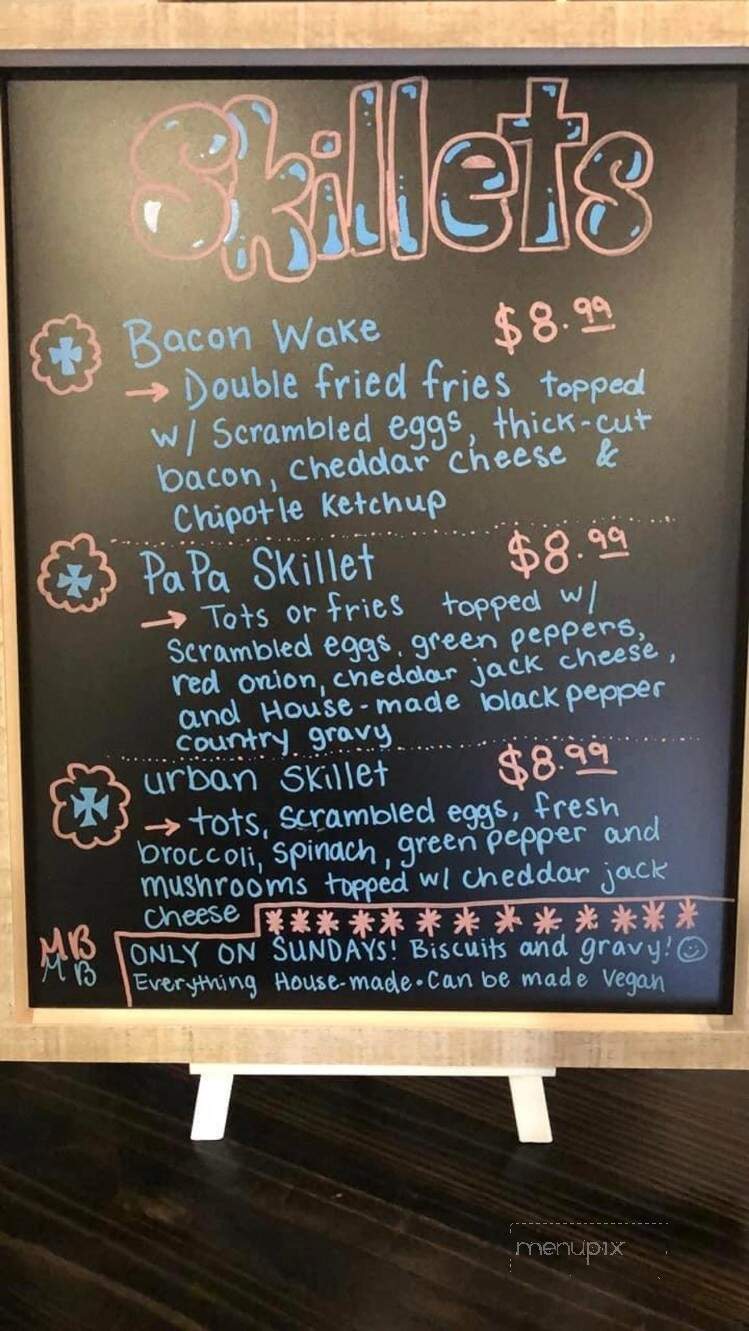 Skillets
Bacon Wake $8.99
→ Double fried fries topped
w/ Scrambled eggs, thick-cut
bacon, cheddar cheese &
Chipotle Ketchup
PaPa Skillet $8.99
→ Tots or fries topped w/
Scrambled eggs, green peppers,
red onion, cheddar jack cheese,
and House-made black pepper
country gravy
urban Skillet $8.99
→ tots, scrambled eggs, fresh
broccoli, spinach, green pepper and
mushrooms topped w/ cheddar jack
cheese
MB
MB
ONLY ON SUNDAYS! Biscuits and gravy!
Everything House-made • Can be made Vegan
menupix